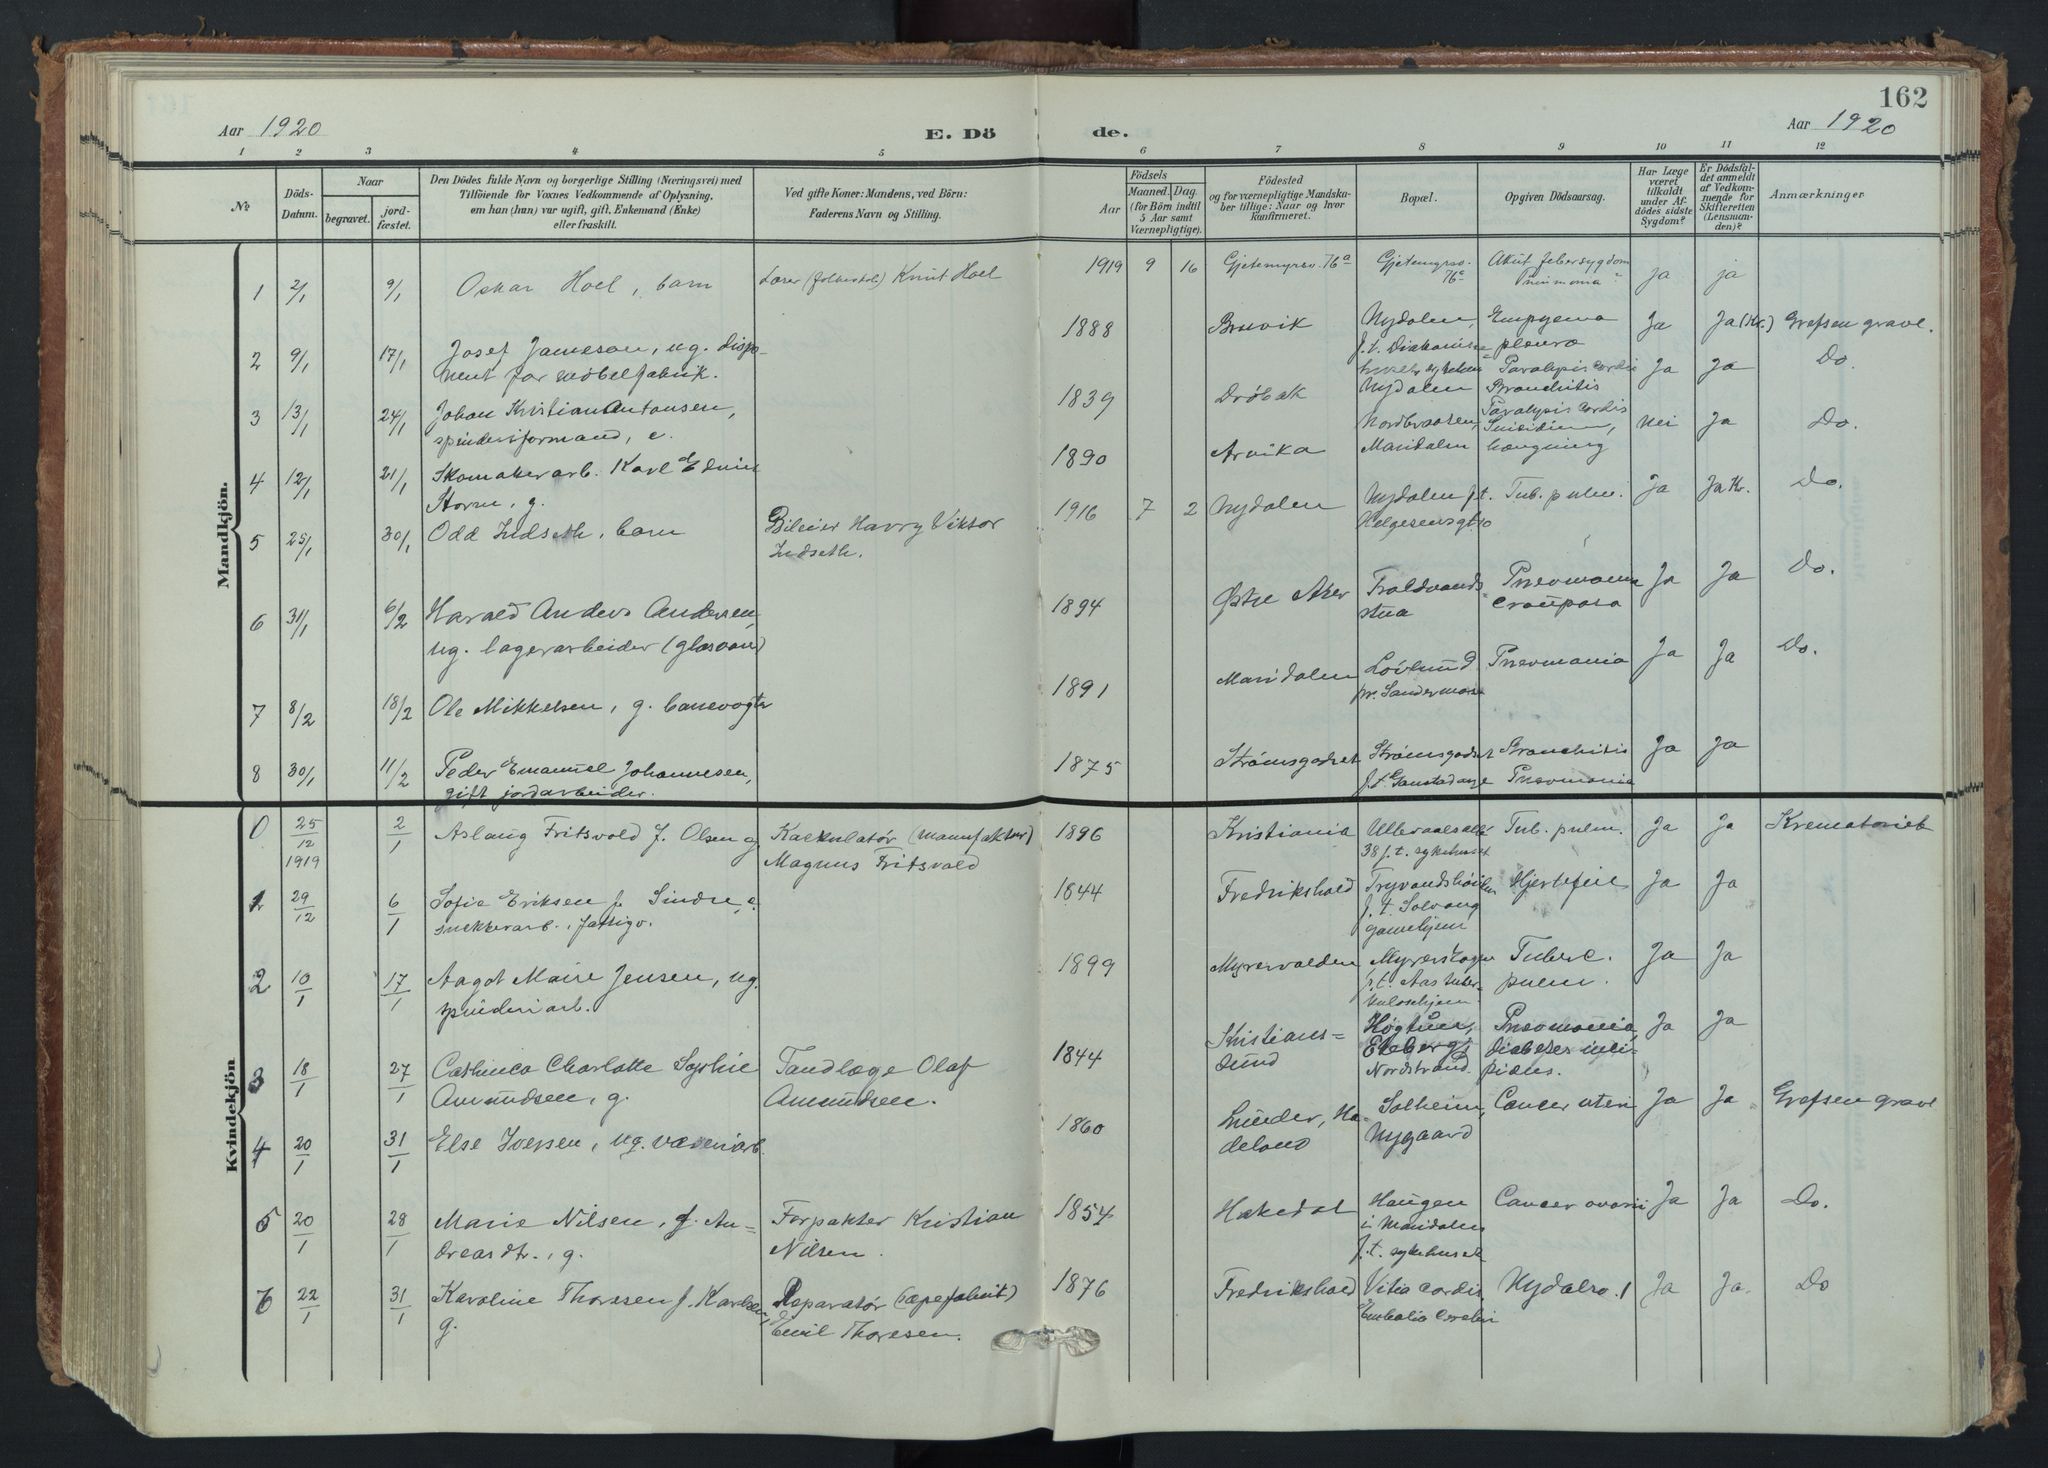 162
Aar 1920
E. Dö de.
Aar 1920
1 2 3 4 5 6 7 8 9 10 11 12
№
Döds-Datum.
Naar
begravet. jord-fæstet.
Den Dödes fulde Navn og borgerlige Stilling (Næringsvei) med
Tilföiende for Voxnes Vedkommende af Oplysning,
om han (hun) var ugift, gift, Enkemand (Enke)
eller fraskilt.
Ved gifte Koner: Mandens, ved Börn:
Faderens Navn og Stilling.
Födsels
Aar
Maaned. Dag.
(for Börn indtil
5 Aar samt
Værnepligtige).
Födested
og for værnepligtige Mandska-
ber tillige: Naar og hvor
Konfirmeret.
Bopæl.
Opgiven Dödsaarsag.
Har Læge
været
tilkaldt
under Af-
dödes sidste
Sygdom?
Er Dödsfal-
det anmeldt
af Vedkom-
mende for
Skifteretten
(Lensman-
den)?
Anmærkninger
Mandkjön.
1 2/1 9/1 Oskar Hoel, barn Lærer (folkeskole) Knut Hoel 1919 9 16 Gjetemyrsv. 76a Gjetemyrsv. Akut febersygdom Ja ja
76a Pneumonia
2 9/1 17/1 Josef Jameson, ug. dispo- 1888 Bruvik Nydalen, Empyema Ja Ja (Kr.) Grefsen gravl.
nent for møbelfabrik. f.t. Diakonisse- pleura
3 13/1 24/1 Johan Kristian Antonsen, 1839 Drøbak Nydalen Paralysis cordis Ja Ja Do.
spinderiformand, e. Bronchitis
Paralysis cordis
4 12/1 21/1 Skomakerarb. Karl Edvin 1890 Arvika Nordbraaten, Suicidium, Nei Ja Do.
Storm, g. Maridalen hængning
5 25/1 30/1 Odd Indseth, barn Bileier Harry Viktor 1916 7 2 Nydalen Nydalen f.t. Tub. pulm. Ja Ja Kr. Do.
Indseth. Helgesensgt 10
6 31/1 6/2 Harald Anders Andersen, 1894 Østre Aker Troldvands- Pneumonia Ja Ja Do.
ug. lagerarbeider (glasvare) stua crouposa
7 8/2 18/2 Ole Mikkelsen, g. banevogter 1891 Maridalen Løvlund Pneumonia Ja Ja Do.
pr. Sandermosen
8 30/1 11/2 Peder Emanuel Johannesen, 1875 Strømsgodset Strømsgodset Bronchitis Ja Ja
gift jordarbeider. f.t. Pneumonia
Kvindekjön
0 25/12 1919 2/1 Aslaug Fritsvold f. Olsen g. Kalkulatør (manufaktur) 1896 Kristiania Ullevaalsalle Tub. pulm. Ja Ja Krematoriet
Magnus Fritsvold 38 f.t. sykehuset
1 29/12 6/1 Sofie Eriksen f. Sindre, e. 1844 Fredrikshald Tryvandshøiden Hjertefeil Ja Ja
snekkerarb., fattigv. f.t. Solvang
gamlehjem
2 10/1 17/1 Aagot Marie Jensen, ug. 1899 Myrervolden Myrerskogen Tuberc. Ja Ja
spinderiarb. f.t. Aas tuber- pulm.
kulosehjem
3 18/1 27/1 Cathinca Charlotte Sophie Tandlæge Olaf 1844 Kristians- Høgtun, Pneumonia, Ja Ja
Amundsen, g. Amundsen. sund Ekeberg, diabetes insi-
Nordstrand. pidus.
4 20/1 31/1 Else Iversen, ug. væveriarb. 1860 Lunder, Ha- Solheim, Cancer uteri Ja Ja Grefsen gravl
deland Nygaard
5 20/1 28/1 Marie Nilsen, f. An- Forpakter Kristian 1854 Hakedal Haugen Cancer ovarii Ja Ja Do.
dreasdtr., g. Nilsen. i Maridalen
f.t. sykehuset
6 22/1 31/1 Karoline Thoresen f. Karlsen, Reparatør (sæpefabrik) 1876 Fredrikshald Vitia cordis Nydalsv. 1 Ja Ja. Do
g. Emil Thoresen. Embolia cerebri